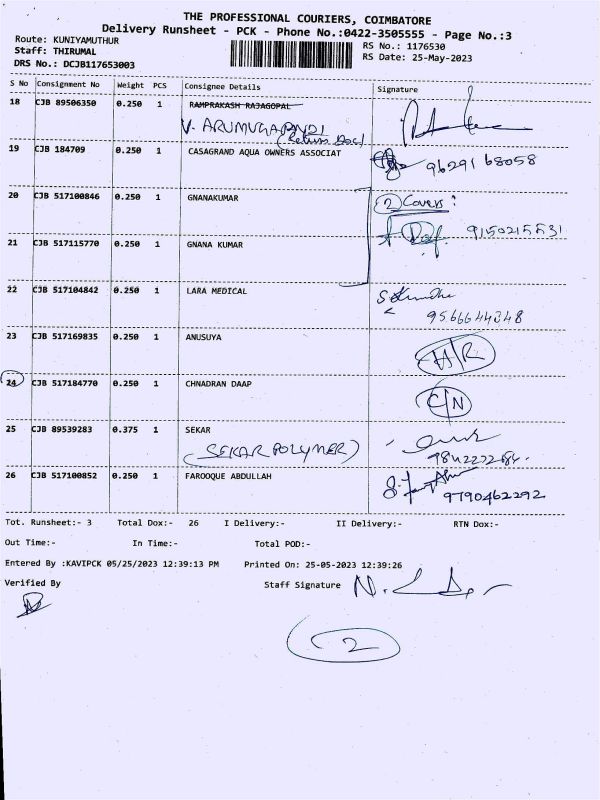 THE PROFESSIONAL COURIERS, COIMBATORE
Delivery Runsheet - PCK - Phone No.:0422-3505555 - Page No.:3
Route: KUNIYAMUTHUR
Staff: THIRUMAL
DRS No.: DCJB117653003
RS No.: 1176530
RS Date: 25-May-2023
S No Consignment No Weight PCS Consignee Details Signature
18 CJB 89506350 0.250 1 RAMPRAKASH RAJAGOPAL
V. ARUMUGAPANDI
(Return Doc)
19 CJB 184709 0.250 1 CASAGRAND AQUA OWNERS ASSOCIAT 9629168058
20 CJB 517100846 0.250 1 GNANAKUMAR 2 Covers:
21 CJB 517115770 0.250 1 GNANA KUMAR 9150215531
22 CJB 517104842 0.250 1 LARA MEDICAL
9566644348
23 CJB 517169835 0.250 1 ANUSUYA
24 CJB 517184770 0.250 1 CHNADRAN DAAP C/N
25 CJB 89539283 0.375 1 SEKAR
(SEKAR POLYMER)
26 CJB 517100852 0.250 1 FAROOQUE ABDULLAH
9790462292
Tot. Runsheet:- 3 Total Dox:- 26 I Delivery:- II Delivery:- RTN Dox:-
Out Time:- In Time:- Total POD:-
Entered By :KAVIPCK 05/25/2023 12:39:13 PM Printed On: 25-05-2023 12:39:26
Verified By Staff Signature
2